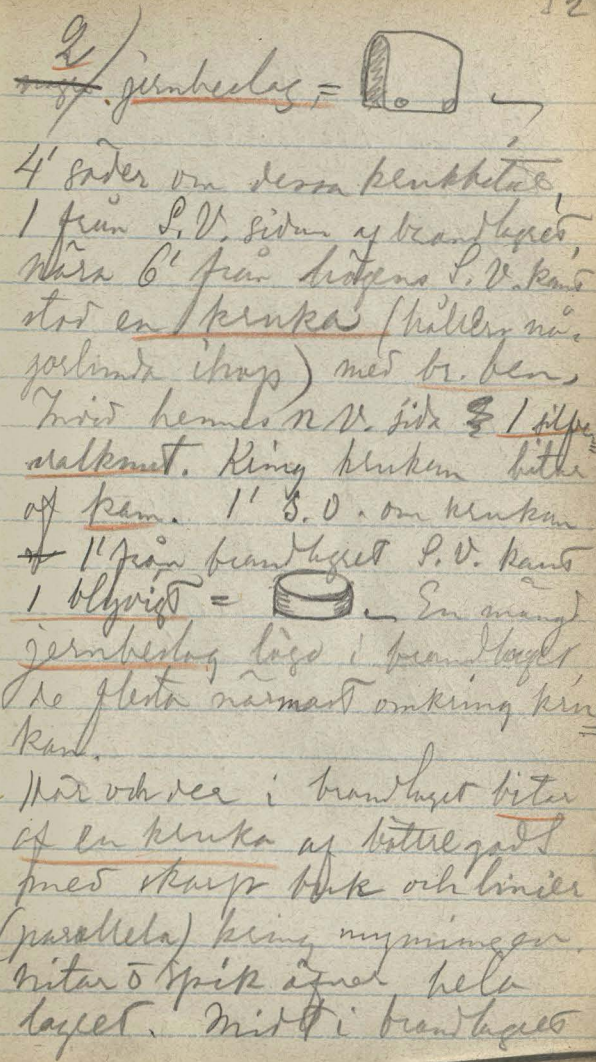 12
2)
jernbeslag =
4' söder om dessa krukbitar,
1' från S.V. sidan af brandlagret,
nära 6' från högens S.V. kant
stod en kruka (håller nå-
gorlunda ihop) med br. ben,
Invid hennes N V. sida 1 silfver
valknut. Kring krukan bitar
af kam. 1' S.O. om krukan
1' från brandlagret S.V. kant
1 blyvigt = En mängd
jernbeslag lågo i brandlaget,
de flesta närmast omkring kru
kan.
Här och der i brandlaget bitar
af en kruka af bättre gods
med skarp buk och linier
(parallela) kring mynningen.
Nitar o spik öfver hela
lagret. Midt i brandlagret